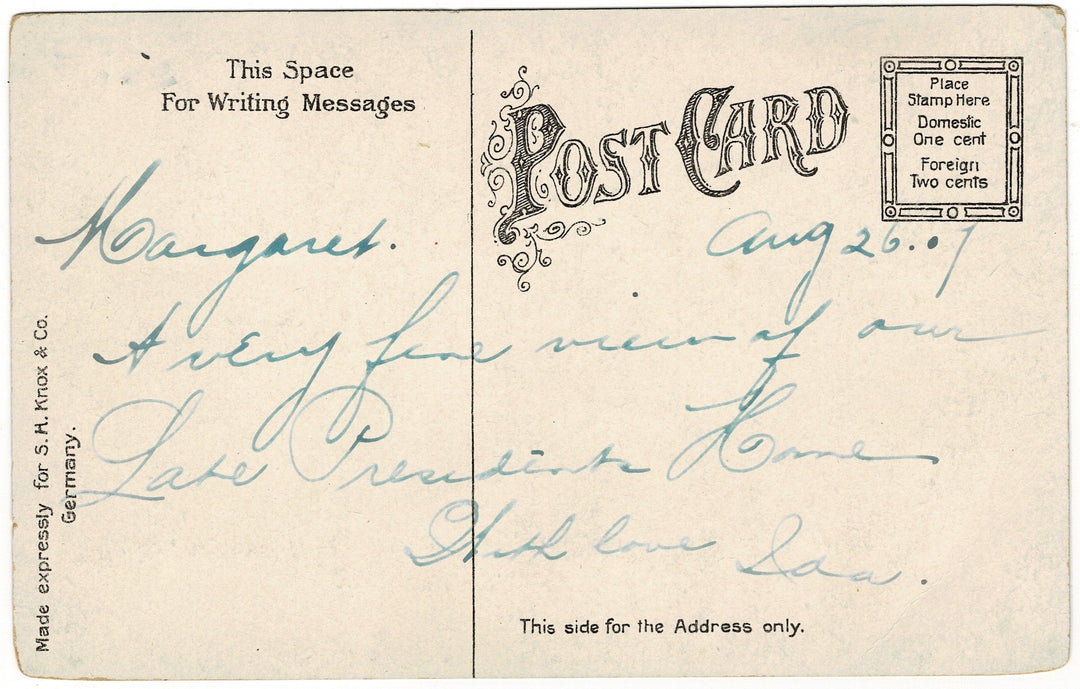 This Space
For Writing Messages
POST CARD
Place
Stamp Here
Domestic
One cent
Foreign
Two cents
Aug 26. 07
Margaret.
A very fine view of our
Late Presidents Home
With love Ida.
Made expressly for S. H. Knox & Co.
Germany.
This side for the Address only.